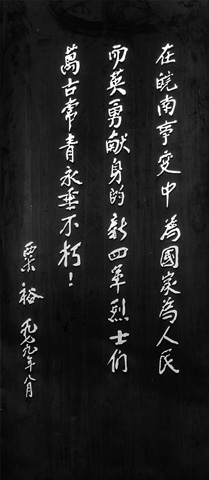 在皖南事变中為國家為人民
而英勇献身的新四军烈士们
萬古常青永垂不朽！
粟裕 一九七九年八月